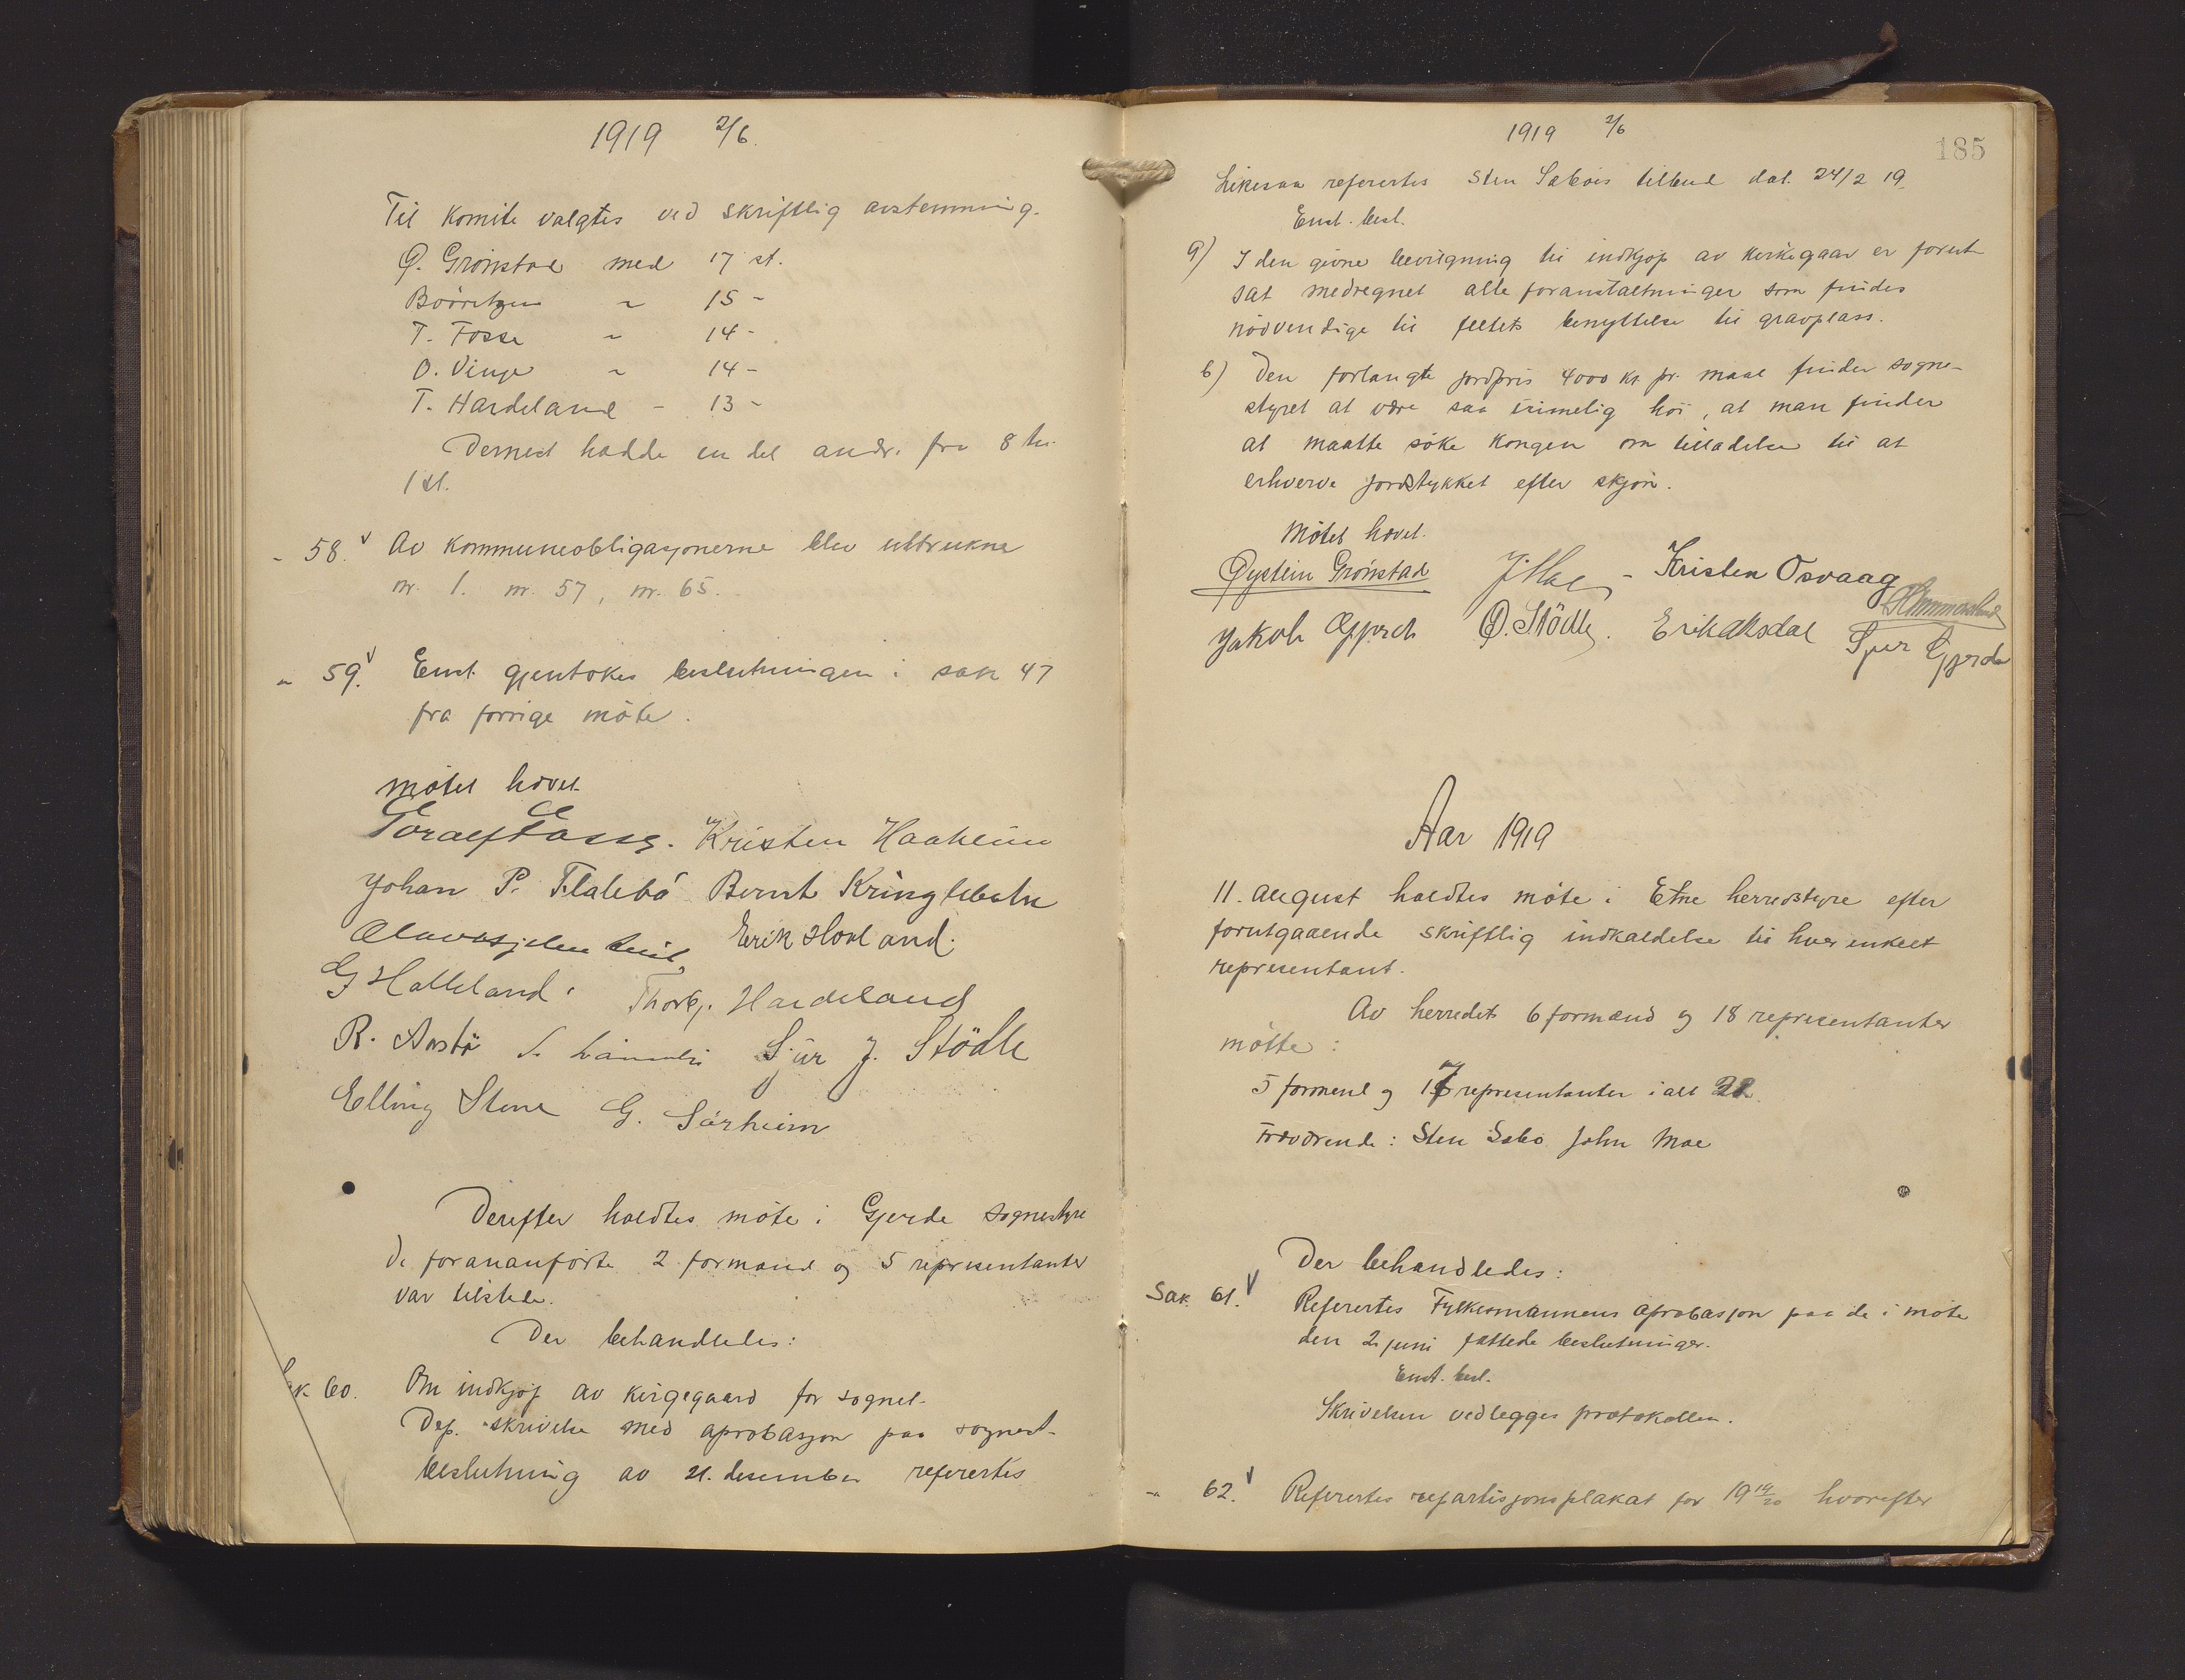 1919 2/6.
Til komite valgtes ved skriftlig avstemning.
Ø. Grönstad med 17 st.
Börretzen " 15 -
T. Fosse " 14 -
O. Vinje " 14 -
T. Hardeland - 13 -
Dernest hadde en del andr. fra 8 til
1 st.
- 58. v Av kommuneobligasjonerne blev uttrukne
nr. 1. nr. 57, nr. 65.
" 59. v Enst. gjentokes beslutningen i sak 47
fra forrige möte.
Mötet hævet.
Toralf Fosse. Kristen Haaheim
Johan P. Flatebö Bernt Kringlebotn
Erik Hovland.
G Halleland. Thorbj. Hardeland
R. Austbö Sjur J. Stödle
Elling Stene G. Sörheim
Derefter holdtes möte i Gjerde sognestyre
De forananförte 2 formænd og 5 representanter
var tilstede.
Der behandledes:
Sak 60. Om indkjöp av kirgegaard for sognet.
Dep. skrivelse med aprobasjon paa sognest-
beslutning av 21. desember refertes
1919 2/6
185
Likesaa refertes Sten Sæbøis tilbud dat. 24/2 19.
Enst. besl.
a) I den givne bevilgning til indkjöp av kirkegaar er forut-
sat medregnet alle foranstaltninger som findes
nödvendige til feltets benyttelse til gravplass.
b) Den forlangte jordpris 4000 kr. pr. maal finder sogne-
styret at være saa urimelig höi, at man finder
at maatte söke kongen om tilladelse til at
erhverve jordstykket efter skjön.
Mötet hævet.
Øystein Grönstad J. Moe - Kristen Osvaag
Jakob Ø. Stödle. Erik Aksdal Sjur Gjerde
Aar 1919
11. august holdtes möte i Etne herredstyre efter
forutgaaende skriftlig indkaldelse til hver enkelt
representant.
Av herredets 6 formænd og 18 representanter
mötte:
5 formend og 17 representanter ialt 22.
Fraværende: Sten Sæbö John Moe
Der behandledes:
Sak 61. v Refertes Fylkesmannens aprobasjon paa de i möte
den 2 juni fattede beslutninger.
Enst. besl.
Skrivelsen vedlegges protokollen.
" 62. v Refertes repartisjonsplakat for 19 19/20 hvorefter